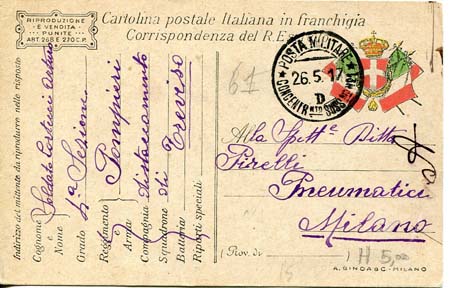 RIPRODUZIONE
E VENDITA
PUNITE
ART. 268 E 270 C.P.
Cartolina postale Italiana in franchigia
Corrispondenza del R. Es
POSTA MILITARE
26.5.17
D
CONCENTRNTO
61
Indirizzo del mittente da riprodurre nelle risposte
Cognome e Nome Soldato Arturo
Grado 4ª Sezione
Reggimento e Arma Pompieri
Compagnia distaccamento
Squadrone di Treviso
Batteria
Riparti speciali
Alla Spett. Ditta
Pirelli
Pneumatici
Milano
(Prov. di )
H 5,00
15
A. GINDA & C. - MILANO